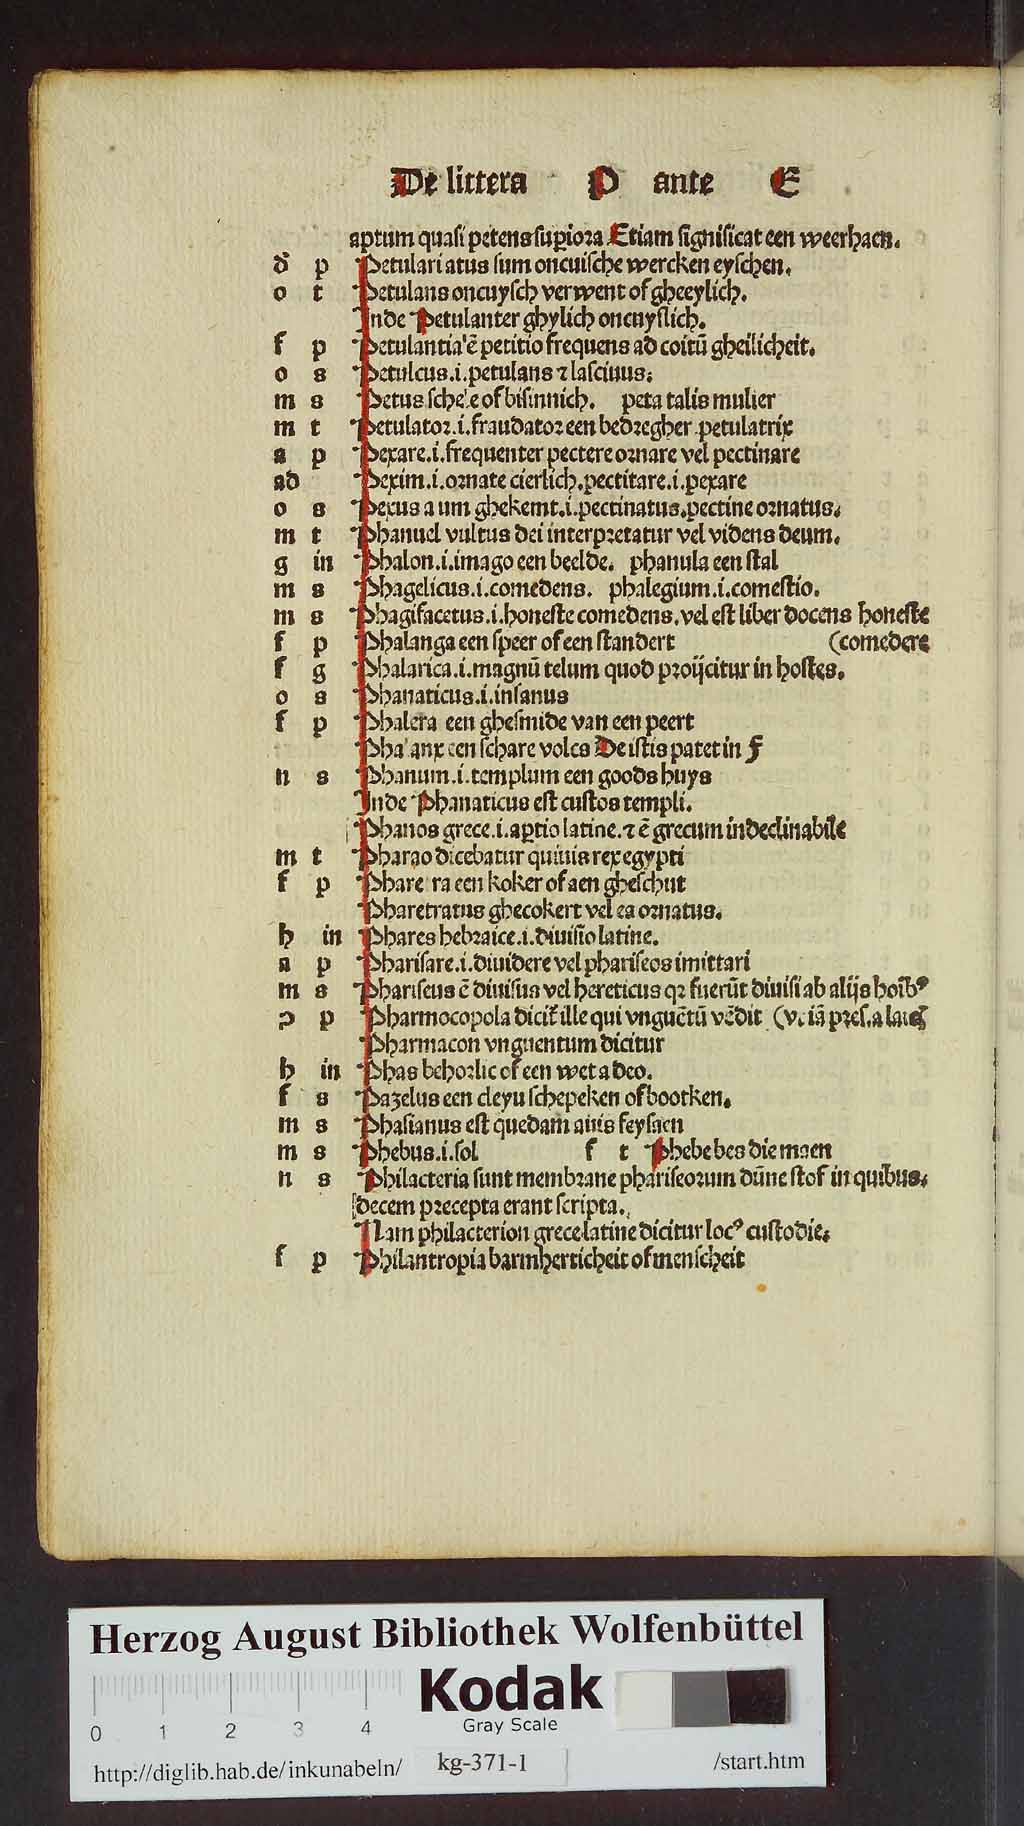 De littera P ante E
aptum quasi petens supiora Etiam significat een weerhaen.
d p Petulari atus sum oncuische wercken eyschen.
o t Petulans oncuysch verwent of gheeylich.
Inde Petulanter ghylich oncuyslich.
f p Petulantia ē petitio frequens ad coitū gheilicheit.
o s Petulcus.i.petulans ⁊ lasciuus.
m s Petus schele of bisinnich. peta talis mulier
m t Petulator.i.fraudator een bedregher petulatrix
a p Pexare.i.frequenter pectere ornare vel pectinare
ad Pexim.i.ornate cierlich.pectitare.i.pexare
o s Pexus a um ghekemt.i.pectinatus.pectine ornatus.
m t Phanuel vultus dei interpretatur vel videns deum.
g in Phalon.i.imago een beelde. phanula een stal
m s Phagelicus.i.comedens. phalegium.i.comestio.
m s Phagifacetus.i.honeste comedens.vel est liber docens honeste
f p Phalanga een speer of een standert (comedere
f g Phalarica.i.magnū telum quod proijcitur in hostes.
o s Phanaticus.i.insanus
f p Phalera een ghesmide van een peert
Phalanx een schare volcs De istis patet in f
n s Phanum.i.templum een goods huys
Inde Phanaticus est custos templi.
Phanos grece.i.aptio latine.⁊ ē grecum indeclinabile
m t Pharao dicebatur quiuis rex egypti
f p Phare ra een koker of aen gheschut
Pharetratus ghecokert vel ea ornatus.
h in Phares hebraice.i.diuisio latine.
a p Pharisare.i.diuidere vel phariseos imittari
m s Phariseus ē diuisus vel hereticus qꝛ fuerūt diuisi ab alijs hoībꝰ
ɔ p Pharmocopola dicit̄ ille qui vnguētū vēdit (vt iā pres.a laic
Pharmacon vnguentum dicitur
h in Phas behorlic of een wet a deo.
f s Pazelus een cleyn schepeken of bootken.
m s Phasianus est quedam auis feysaen
m s Phebus.i.sol f t Phebe bes die maen
n s Philacteria sunt membrane phariseorum dūne stof in quibus.
decem precepta erant scripta.
Nam philacterion grece latine dicitur locꝰ custodie.
f p Philantropia barmherticheit of menscheit
Herzog August Bibliothek Wolfenbüttel
Kodak
Gray Scale
0 1 2 3 4
http://diglib.hab.de/inkunabeln/ kg-371-1 /start.htm